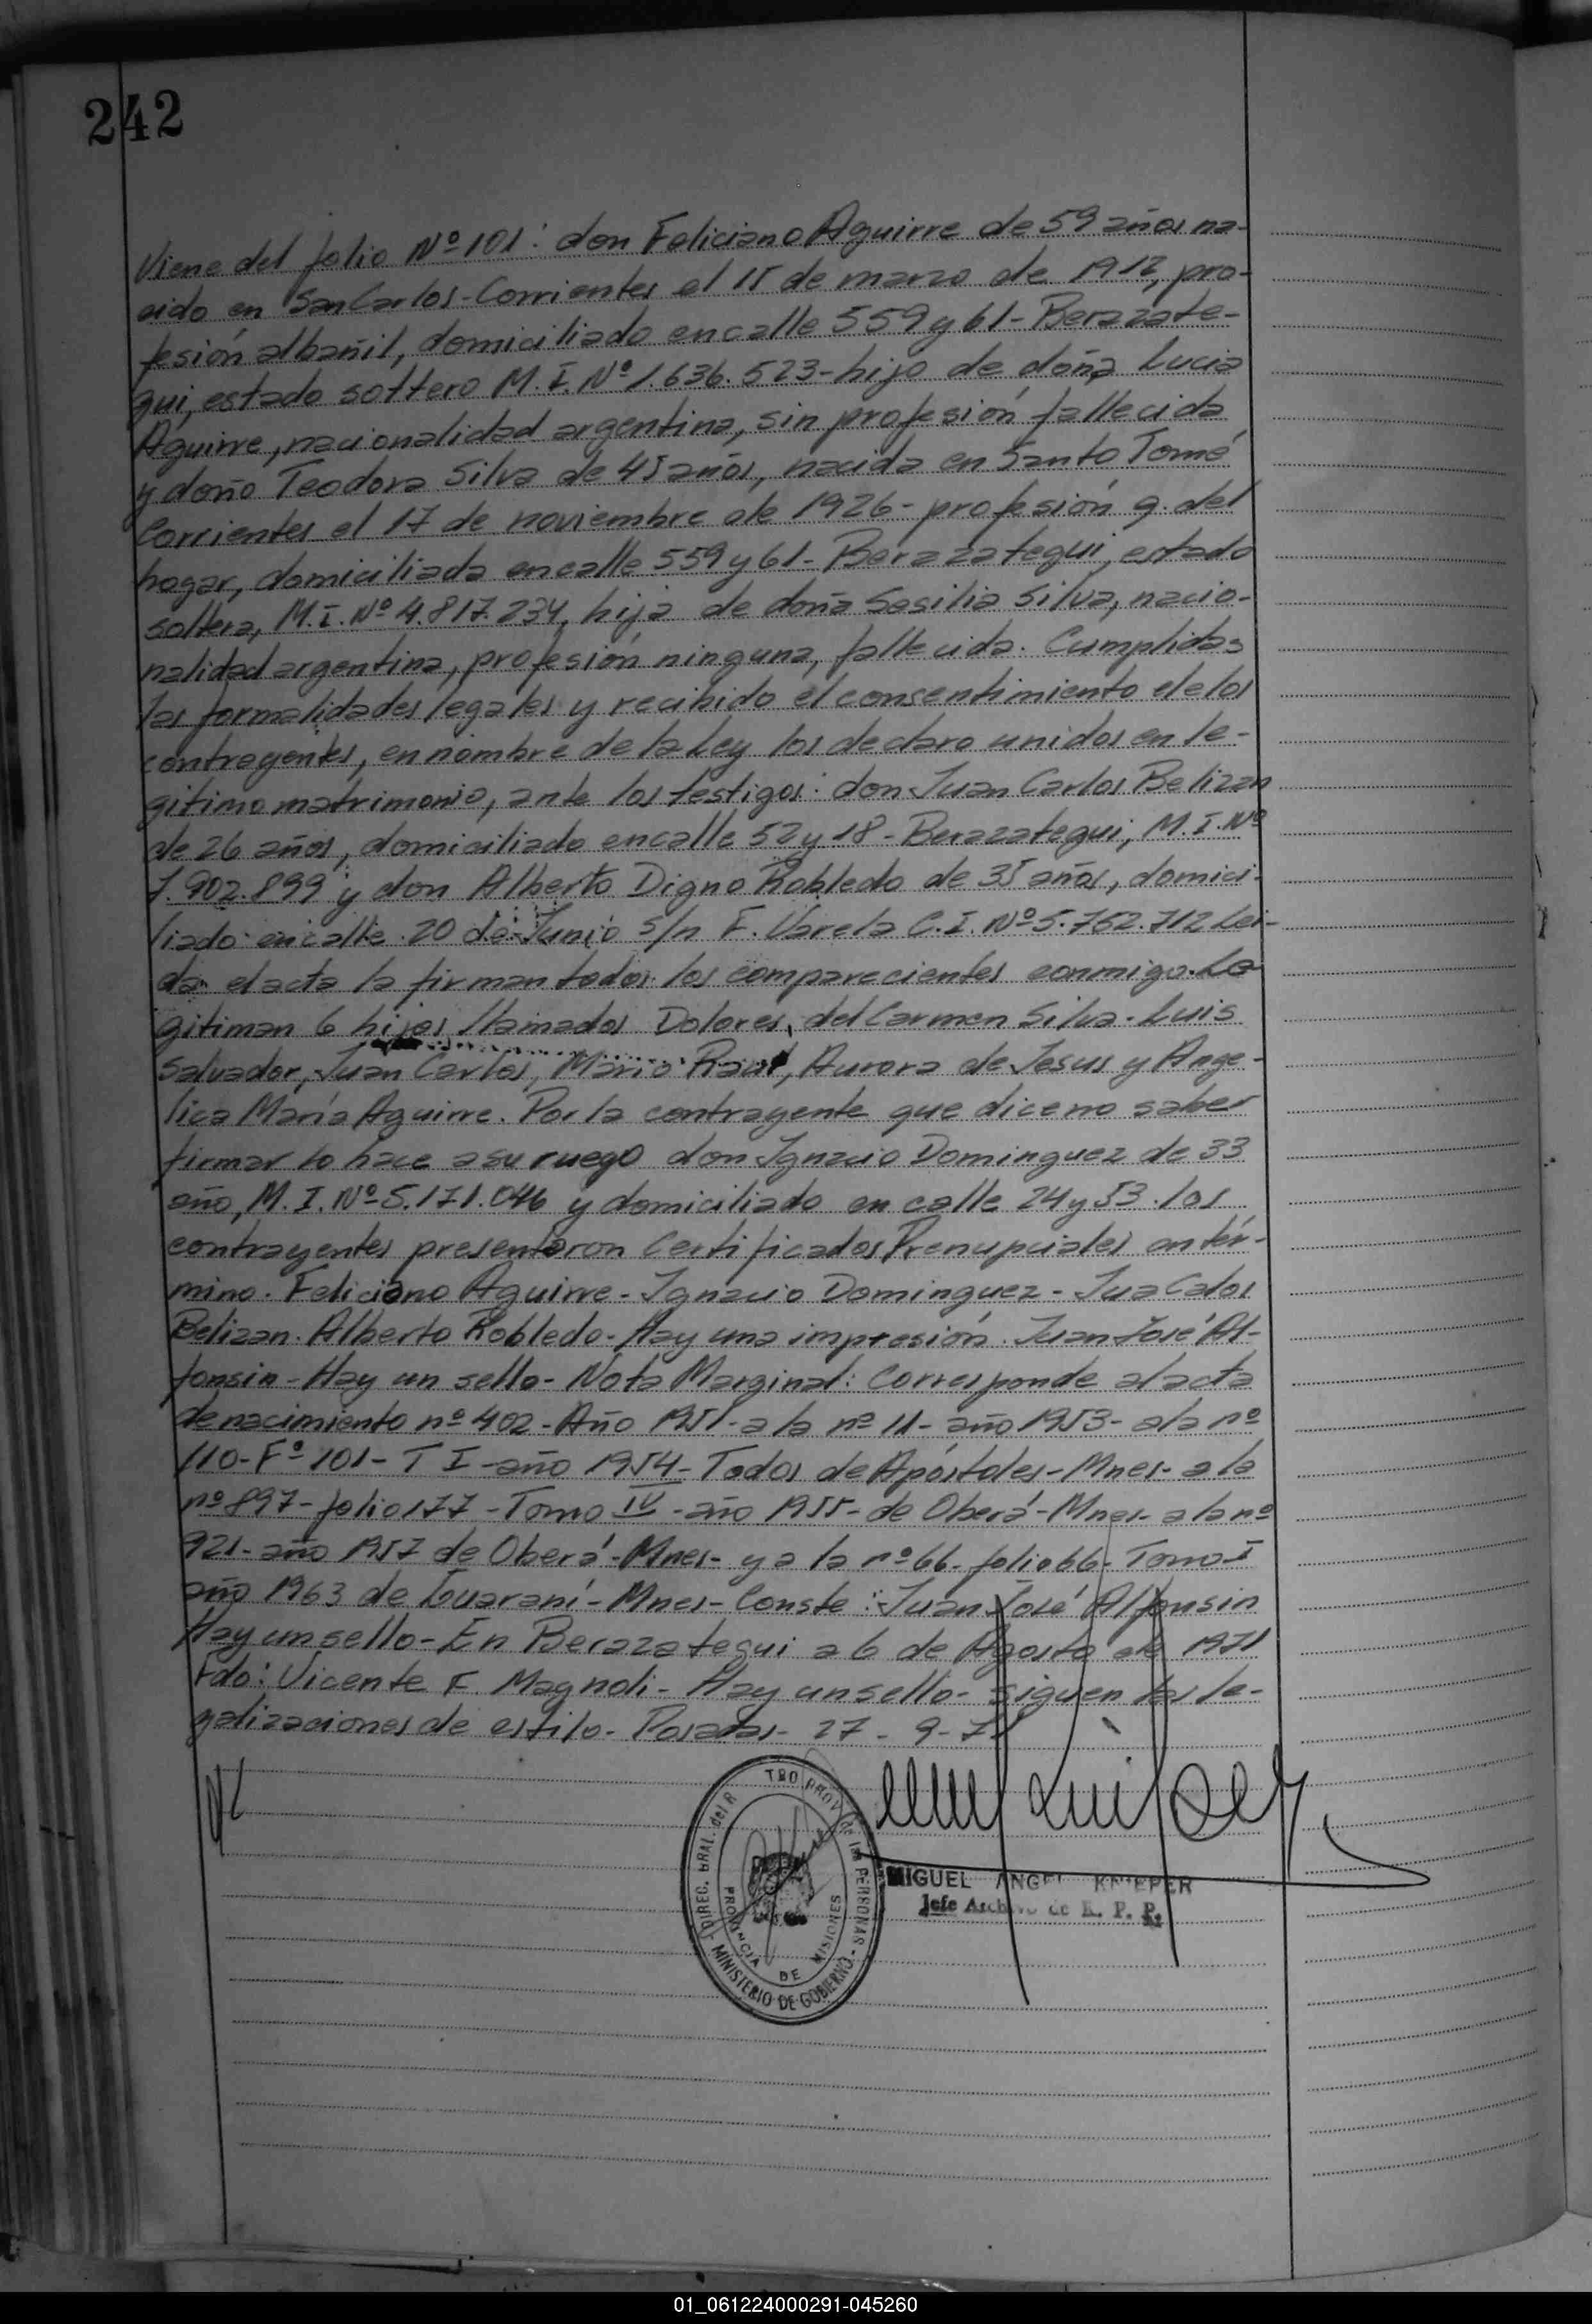 242
Viene del folio Nº 101: don Feliciano Aguirre de 59 años na-
cido en San Carlos-Corrientes el 15 de marzo de 1912, pro-
fesión albañil, domiciliado en calle 559 y 61- Berazate-
gui, estado soltero M.I. Nº 1.636.523- hijo de doña Lucia
Aguirre, nacionalidad argentina, sin profesión fallecida
y doña Teodora Silva de 45 años, nacida en Santo Tomé
Corrientes el 17 de noviembre de 1926- profesión q. del
hogar, domiciliada en calle 559 y 61- Berazategui, estado
soltera, M.I. Nº 4.817.234, hija de doña Sesilia Silva, nacio-
nalidad argentina, profesión ninguna, fallecida. Cumplidas
las formalidades legales y recibido el consentimiento de los
contragentes, en nombre de la Ley los declaro unidos en le-
gitimo matrimonio, ante los testigos: don Juan Carlos Belizan
de 26 años, domiciliado en calle 52 y 18- Berazategui, M.I. Nº
7.902.899 y don Alberto Digno Robledo de 35 años, domici-
liado en calle 20 de Junio s/n F. Varela C.I. Nº 5.752.712 Lei-
da el acta la firman todos los comparecientes conmigo. Le
gitiman 6 hijos llamados Dolores, del Carmen Silva- Luis
Salvador, Juan Carlos, Mario Raul, Aurora de Jesus y Ange-
lica María Aguirre. Por la contrayente que dice no saber
firmar lo hace a su ruego don Ignacio Dominguez de 33
año, M.I. Nº 5.171.046 y domiciliado en calle 24 y 53. los
contrayentes presentaron Certificados Prenupciales en tér-
mino. Feliciano Aguirre- Ignacio Dominguez- Jua Calos
Belizan. Alberto Robledo- Hay una impresión. Juan José Al-
fonsin- Hay un sello- Nota Marginal: Corresponde al acta
de nacimiento nº 402- Año 1951- a la nº 11- año 1953- a la nº
110- Fº 101- T I- año 1954- Todos de Apóstoles- Mnes- a la
nº 897- folio 177- Tomo IV- año 1955- de Oberá- Mnes- a la nº
921- año 1957 de Oberá- Mnes- y a la nº 66- folio 66- Tomo I
año 1963 de Guaraní- Mnes- Conste: Juan José Alfonsin
Hay un sello- En Berazategui a 6 de Agosto de 1971
Fdo: Vicente F. Magnoli- Hay un sello- siguen las le-
galizaciones de estilo- Posadas- 27- 9- 71
DIREC. GRAL. del R TRO PROV. de las PERSONAS
MINISTERIO DE GOBIERNO
PROVINCIA DE MISIONES
MIGUEL ANGEL KNIEPER
Jefe Archivo de R. P. P.
01_061224000291-045260